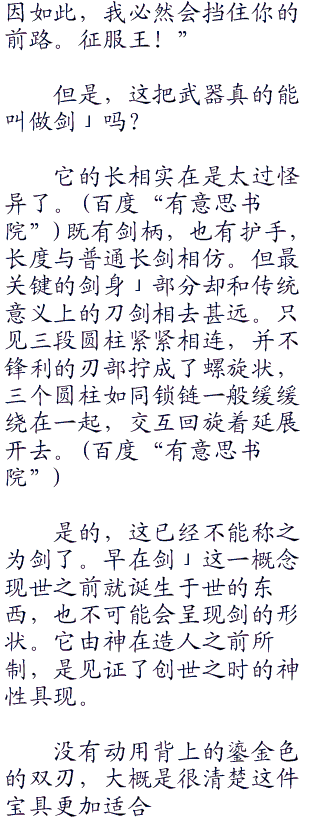 因如此，我必然会挡住你的
前路。征服王！”
但是，这把武器真的能
叫做剑」吗？
它的长相实在是太过怪
异了。(百度“有意思书
院”)既有剑柄，也有护手，
长度与普通长剑相仿。但最
关键的剑身」部分却和传统
意义上的刀剑相去甚远。只
见三段圆柱紧紧相连，并不
锋利的刃部拧成了螺旋状，
三个圆柱如同锁链一般缓缓
绕在一起，交互回旋着延展
开去。(百度“有意思书
院”)
是的，这已经不能称之
为剑了。早在剑」这一概念
现世之前就诞生于世的东
西，也不可能会呈现剑的形
状。它由神在造人之前所
制，是见证了创世之时的神
性具现。
没有动用背上的鎏金色
的双刃，大概是很清楚这件
宝具更加适合